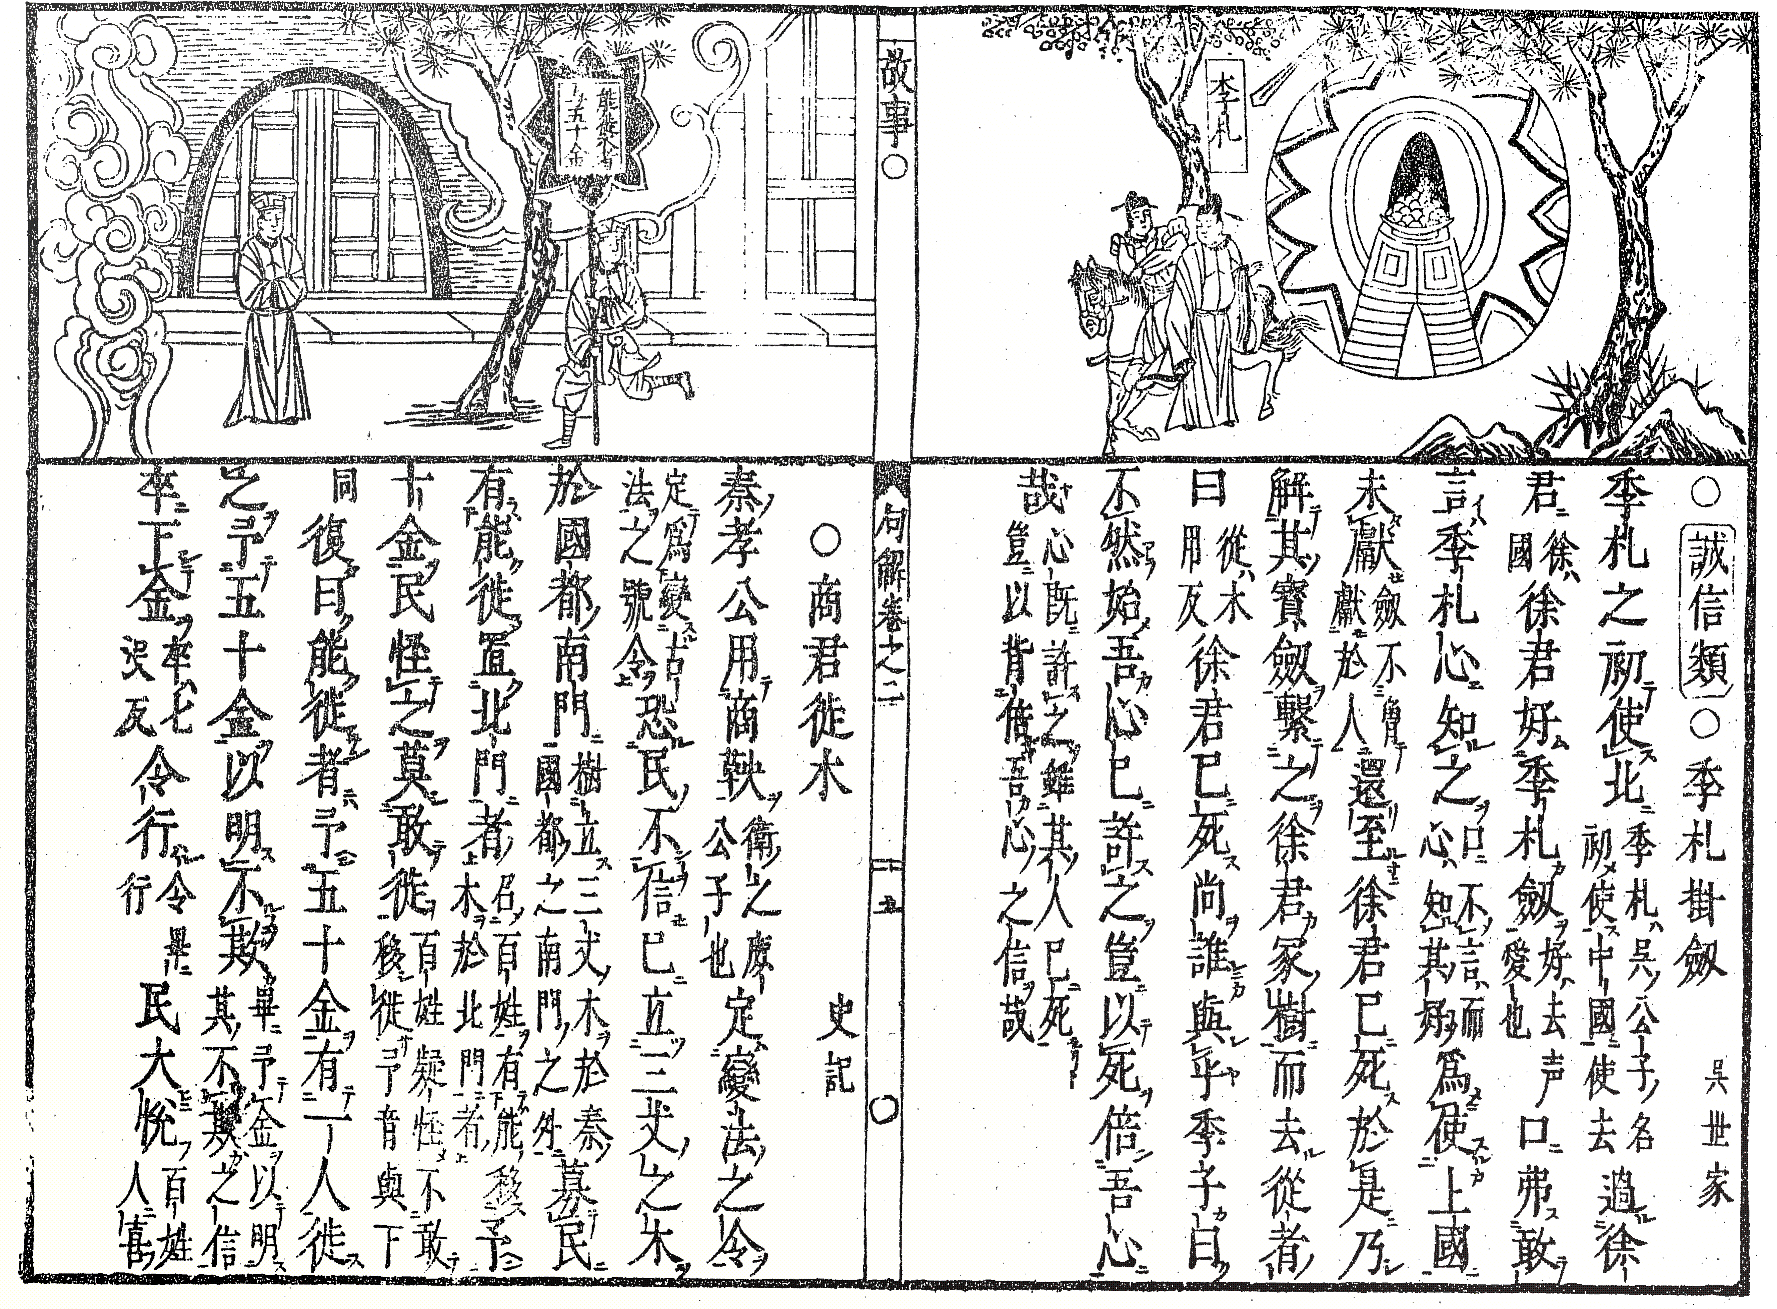 季札
○誠信類○季札掛劔 吳世家
季札之初使北季札吳公子名初使中國使去過徐
君徐國徐君好季札劔好去声愛也口弗敢
言季札心知之口不言而心知其好爲使上國
未獻劔不曾獻於人還至徐君已死於是乃
解其寶劔繫之徐君冢樹而去從者
曰從木用反徐君已死尚誰與乎季子曰
不然始吾心已許之豈以死倍吾心
哉心既許之雖其人已死豈以背倍吾心之信哉
故事○
句解卷之二
十五
能徙木者
予五十金
○商君徙木 史記
秦孝公用商鞅衛之庶公子也定變法之令
定爲變古法之號令恐民不信已立三丈之木
於國都南門樹立三丈木於秦國都之南門之外募民
有能徙置北門者召百姓有能移木於北門者予
十金民怪之莫敢徙百姓疑怪不敢移徙予音與下
同復曰能徙者予五十金有一人徙
之予五十金以明不欺畢予金以明其不欺之信
卒下金卒七没反令行令行畢民大悅百姓人喜